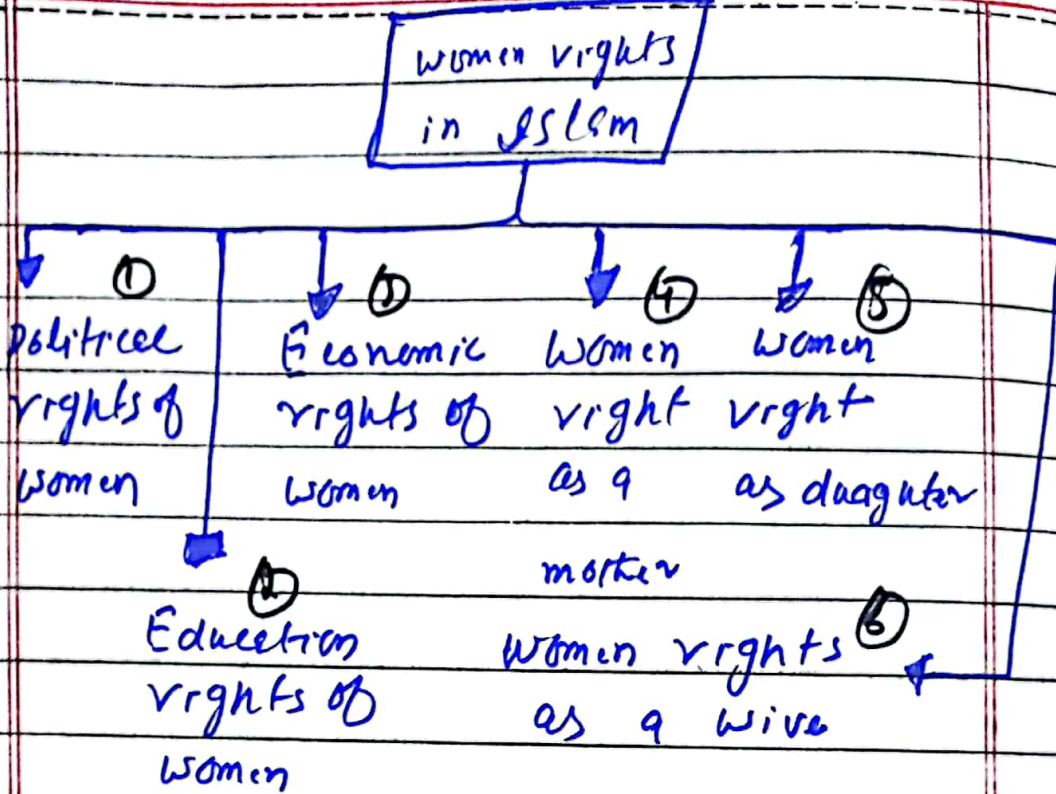 Women rights
in Islam
①
Political
rights of
women
②
Education
rights of
women
③
Economic
rights of
women
④
Women
right
as a
mother
⑤
Women
right
as duaguter
⑥
Women rights
as a wive